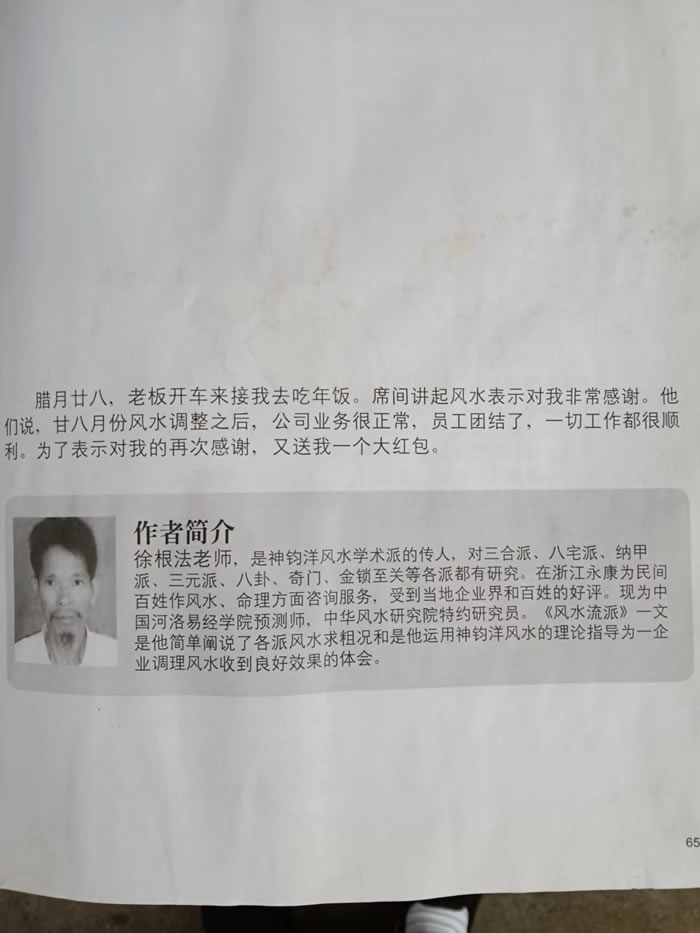 腊月廿八，老板开车来接我去吃年饭。席间讲起风水表示对我非常感谢。他
们说，廿八月份风水调整之后，公司业务很正常，员工团结了，一切工作都很顺
利。为了表示对我的再次感谢，又送我一个大红包。
作者简介
徐根法老师，是神钧洋风水学术派的传人，对三合派、八宅派、纳甲
派、三元派、八卦、奇门、金锁至关等各派都有研究。在浙江永康为民间
百姓作风水、命理方面咨询服务，受到当地企业界和百姓的好评。现为中
国河洛易经学院预测师，中华风水研究院特约研究员。《风水流派》一文
是他简单阐说了各派风水求粗况和是他运用神钧洋风水的理论指导为一企
业调理风水收到良好效果的体会。
65